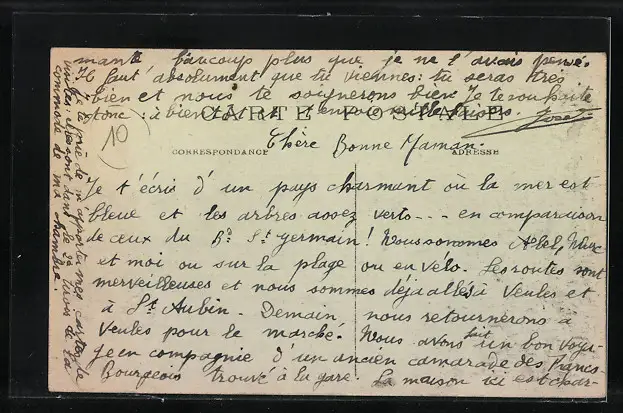 mante beaucoup plus que je ne l'avais pensé.
Il faut absolument que tu viennes : tu seras très
bien et nous te soignerons bien. Je te souhaite
donc : à bientôt et t'envoie mille baisers.
CARTE POSTALE
10
CORRESPONDANCE
ADRESSE
Chère Bonne Maman.
Je t'écris d'un pays charmant où la mer est
bleue et les arbres assez verts --- en comparaison
de ceux du Bd St Germain ! Nous sommes Abel,
et moi ou sur la plage ou en vélo. Les routes sont
merveilleuses et nous sommes déjà allés à Veules et
à St Aubin. Demain nous retournerons à
Veules pour le marché. Nous avons fait un bon voya-
ge en compagnie d'un ancien camarade des Francs-
Bourgeois trouvé à la gare. La maison ici est char-
Je te prie de m'apporter mes cartes de
visites : elles sont dans le 2e tiroir de la
commode de ma chambre.